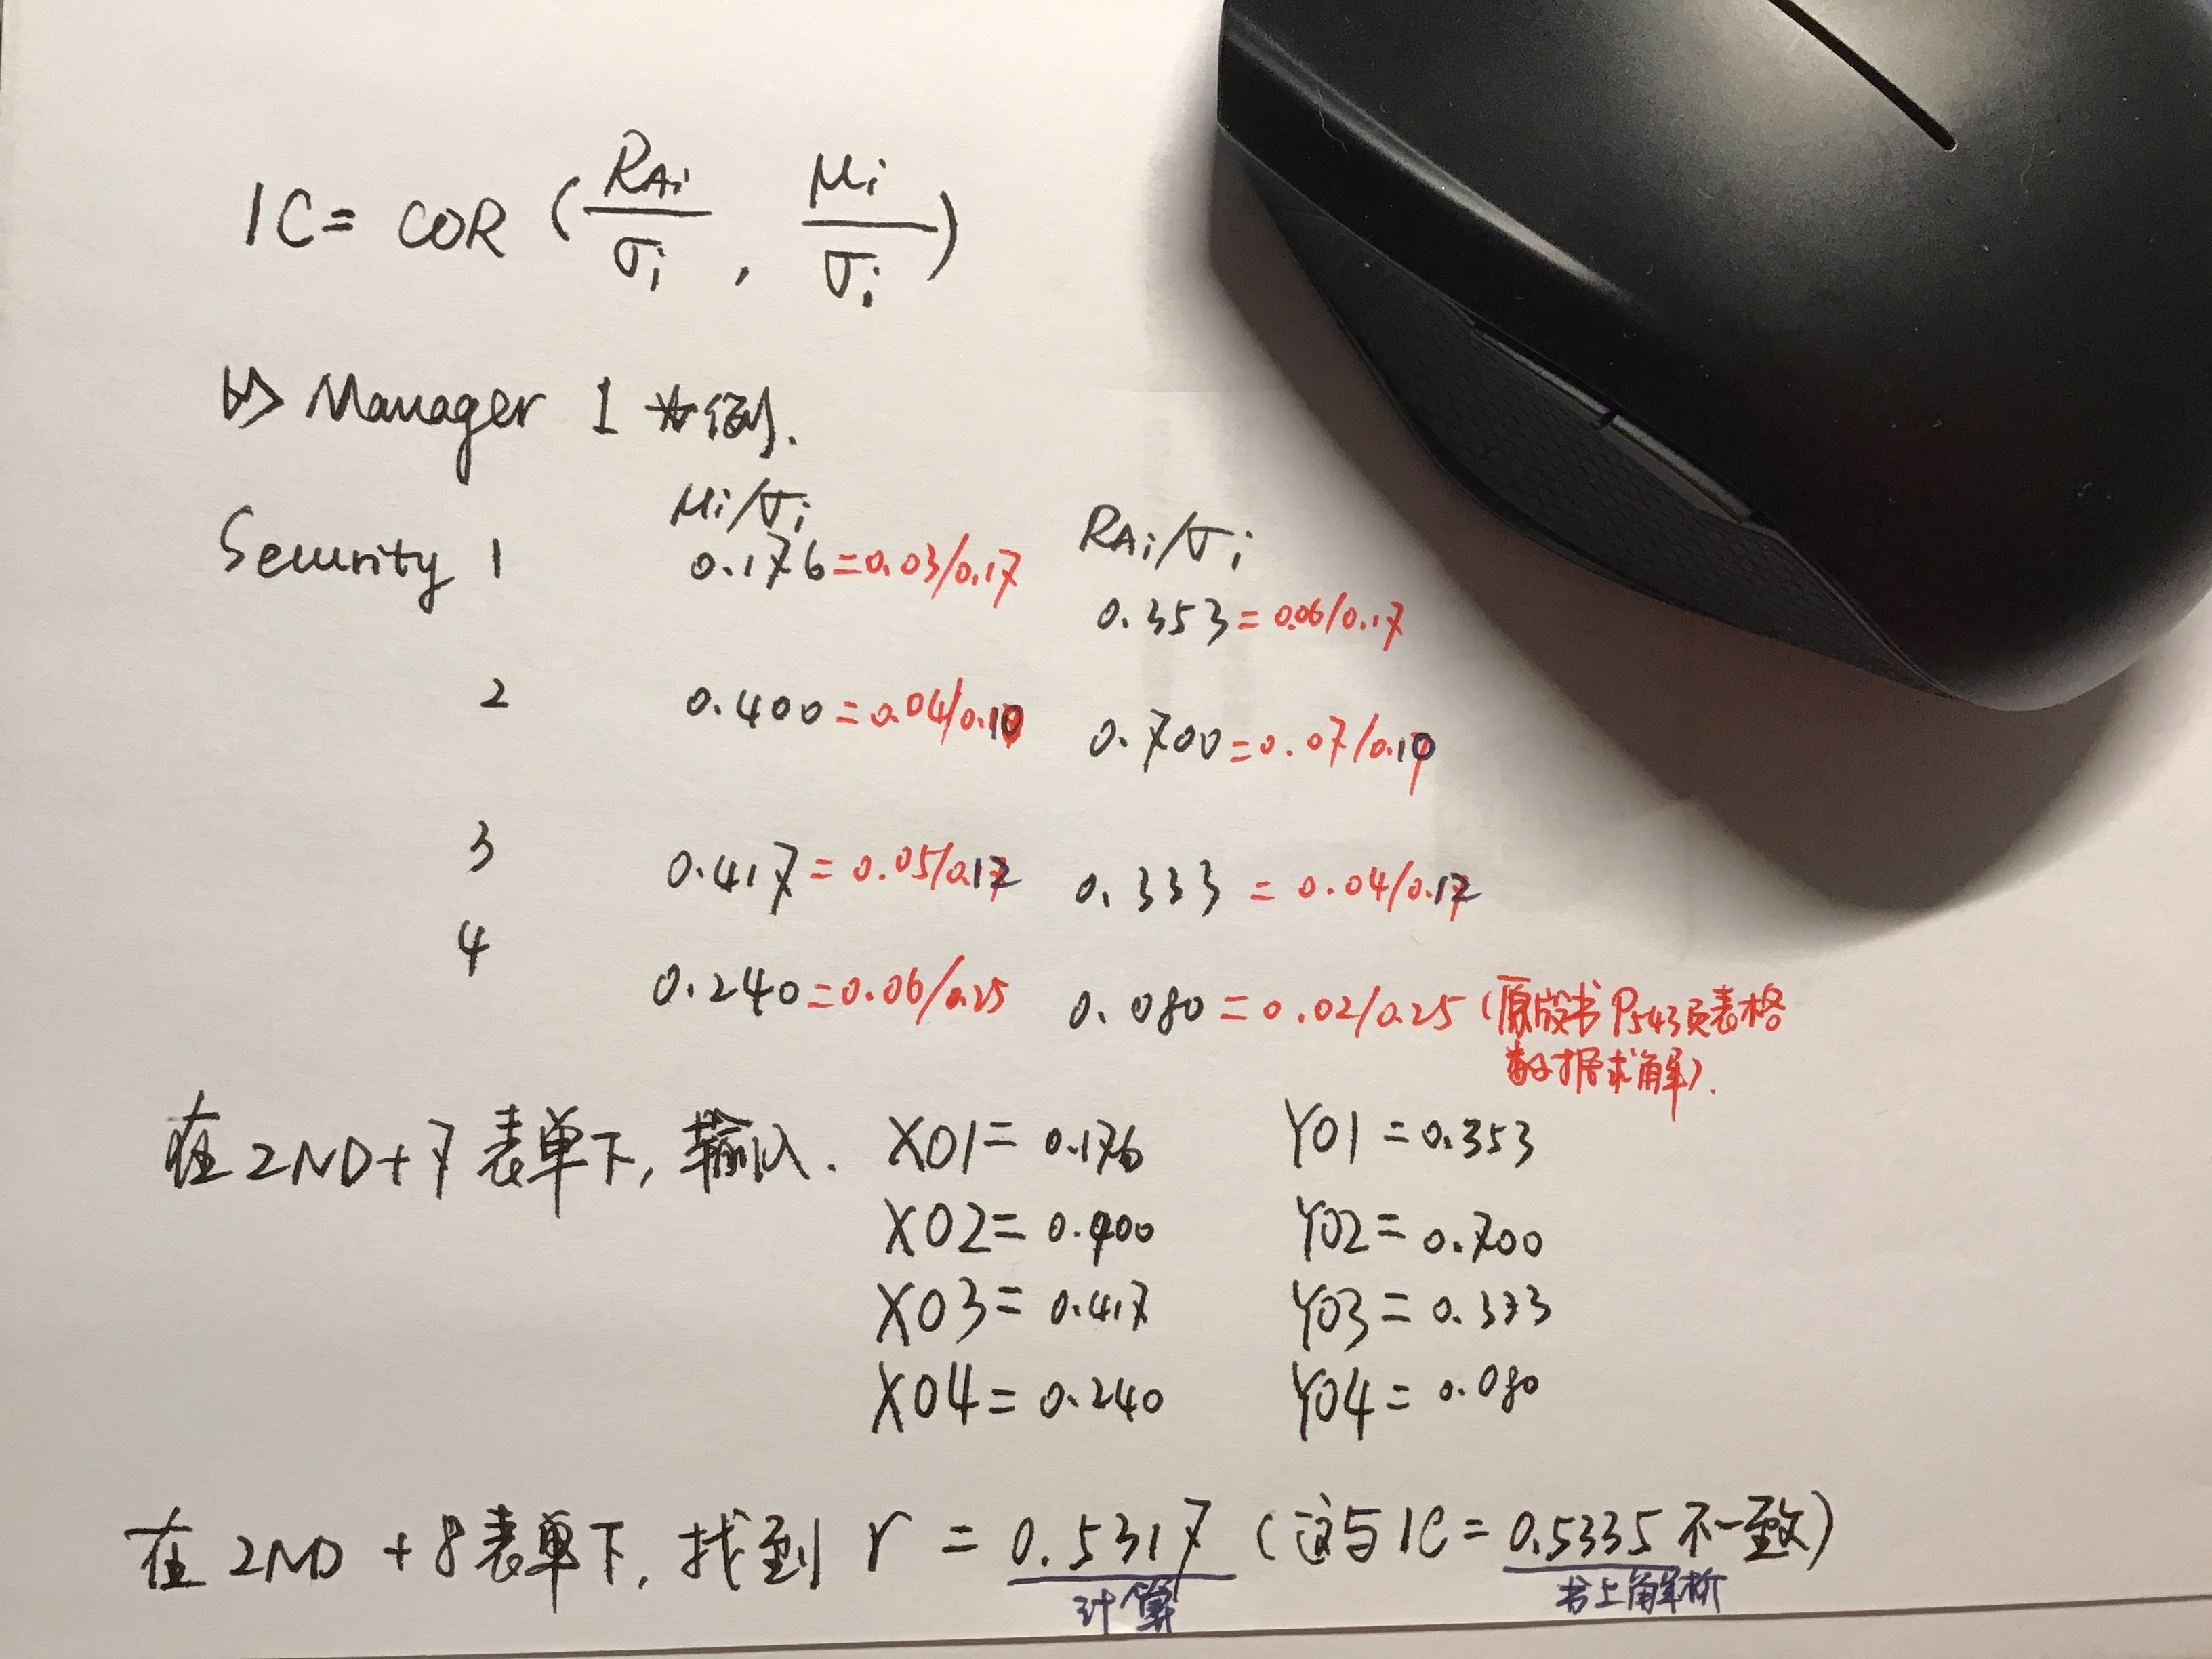 IC = COR (RAi/σi , μi/σi)
以 Manager 1 为例.
μi/σi RAi/σi
Security 1 0.176 = 0.03/0.17 0.353 = 0.06/0.17
2 0.400 = 0.04/0.10 0.700 = 0.07/0.10
3 0.417 = 0.05/0.12 0.333 = 0.04/0.12
4 0.240 = 0.06/0.25 0.080 = 0.02/0.25 (原版书P543页表格
数据求解).
在 2ND+7 表单下, 输入. X01 = 0.176 Y01 = 0.353
X02 = 0.400 Y02 = 0.700
X03 = 0.417 Y03 = 0.333
X04 = 0.240 Y04 = 0.080
在 2ND +8 表单下, 找到 r = 0.5317 (这与IC = 0.5335 不一致)
计算 书上解析